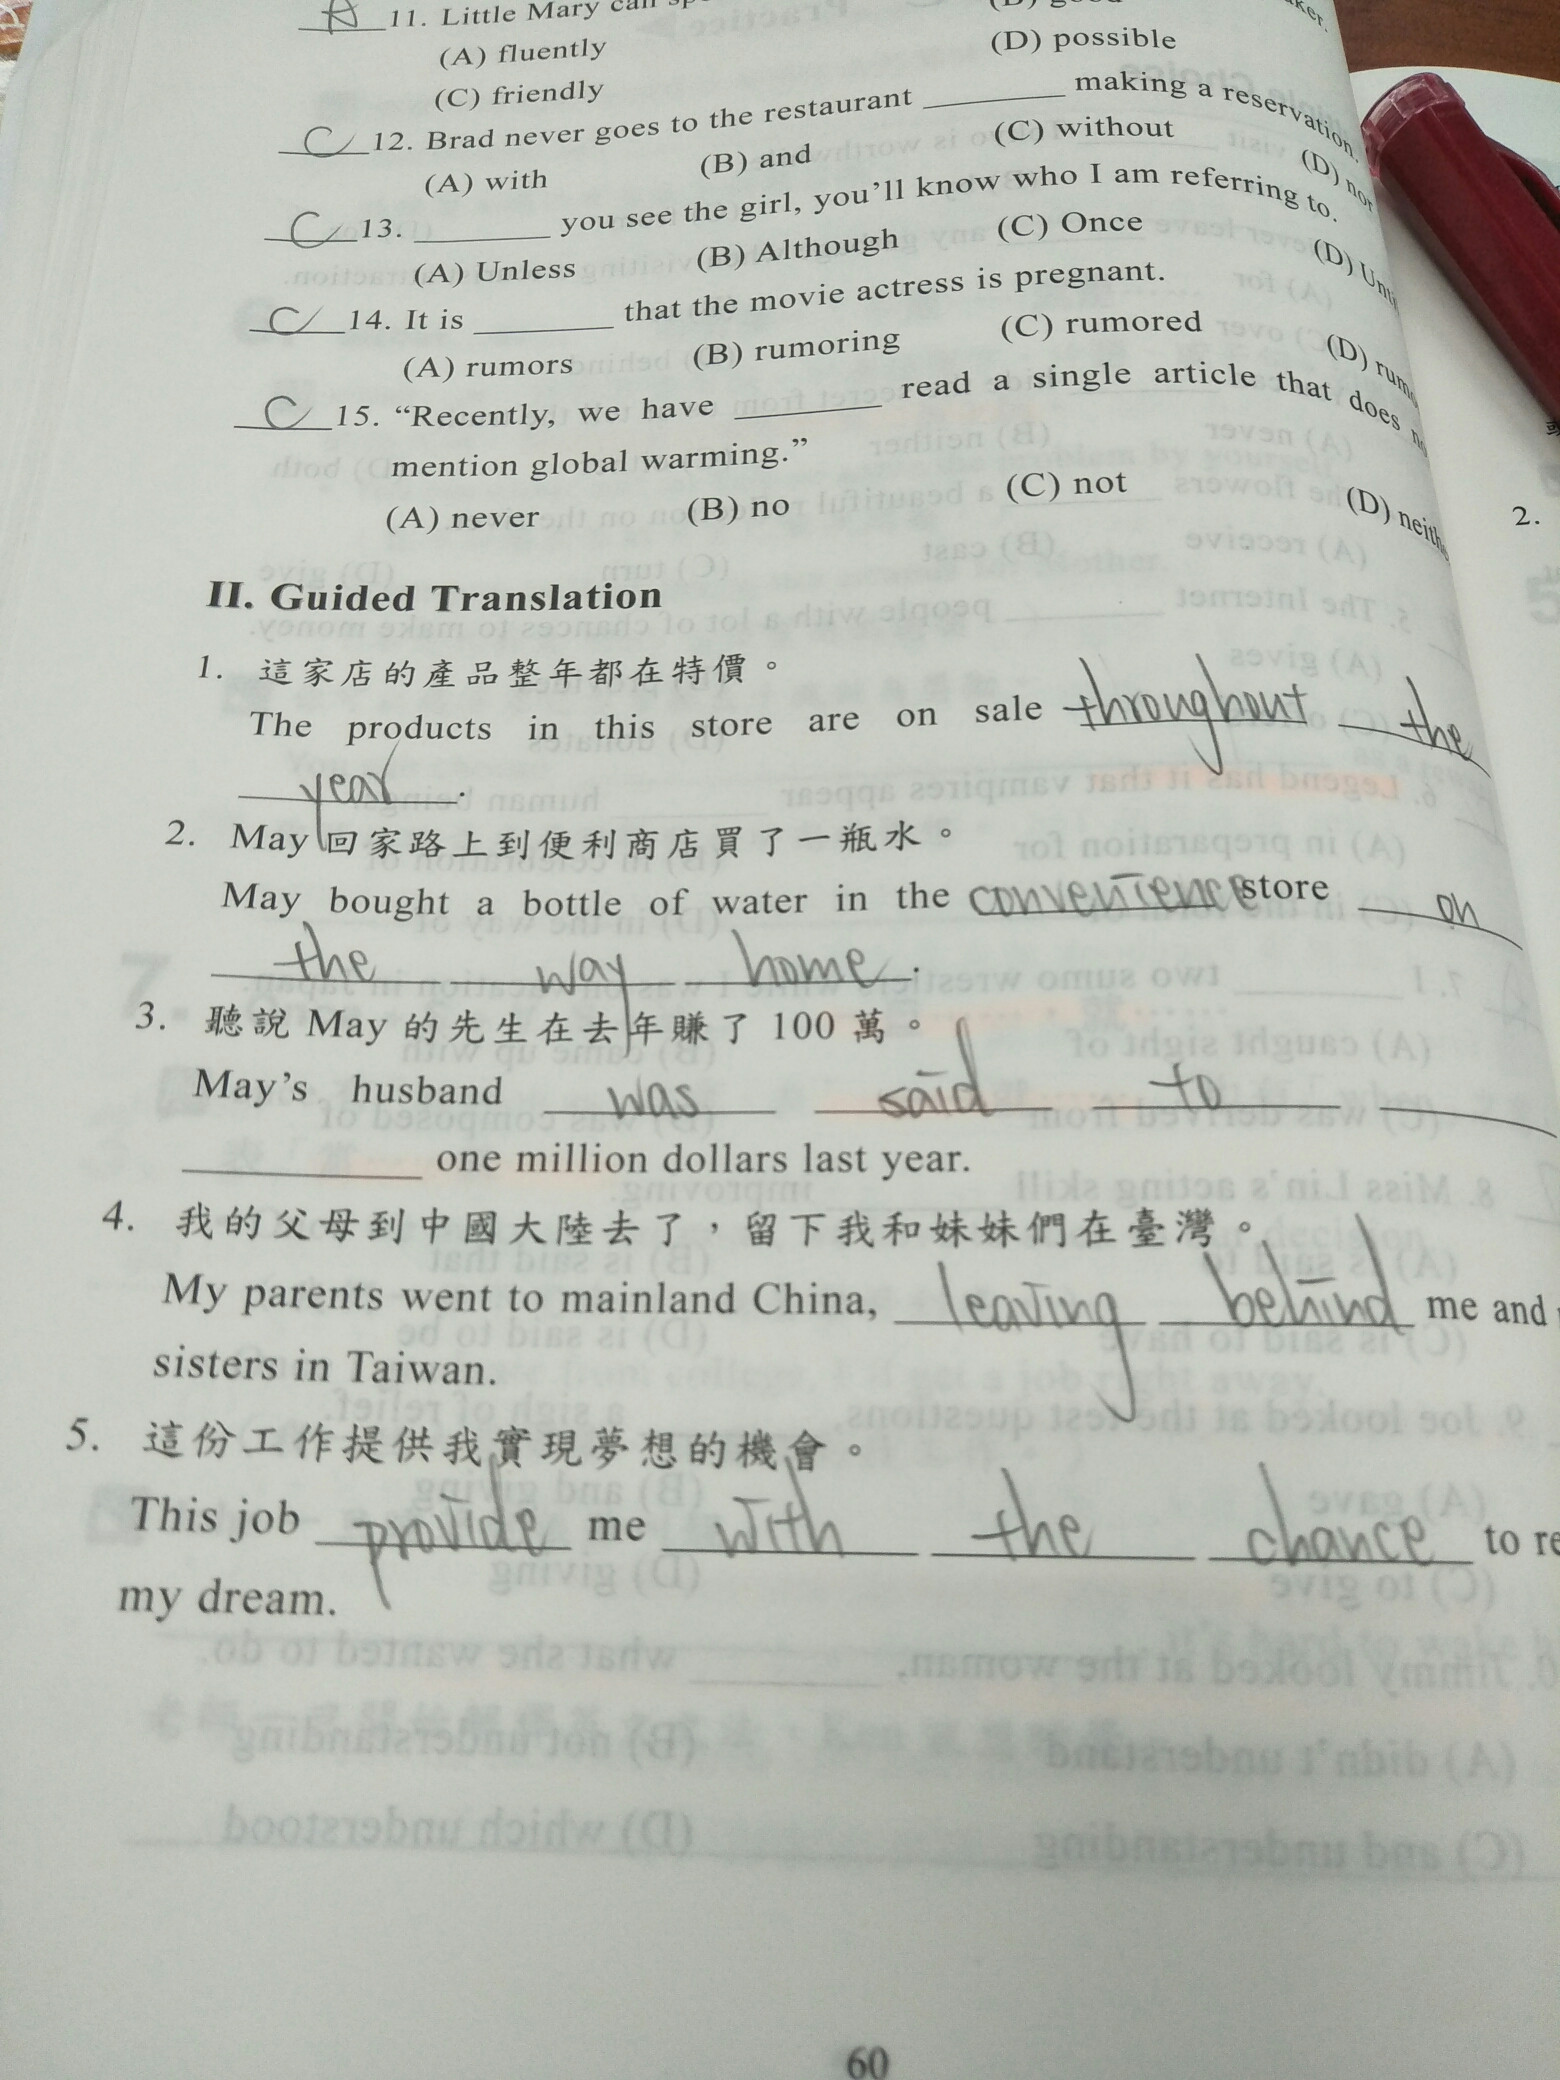 A 11. Little Mary can
(A) fluently
(D) possible
(C) friendly
C 12. Brad never goes to the restaurant ________ making a reservation.
(A) with (B) and (C) without (D) nor
C 13. ________ you see the girl, you'll know who I am referring to.
(A) Unless (B) Although (C) Once (D)
C 14. It is ________ that the movie actress is pregnant.
(A) rumors (B) rumoring (C) rumored (D)
C 15. “Recently, we have ________ read a single article that does
mention global warming.”
(A) never (B) no (C) not (D)
II. Guided Translation
1. 這家店的產品整年都在特價。
The products in this store are on sale throughout the
year.
2. May 回家路上到便利商店買了一瓶水。
May bought a bottle of water in the convenience store on
the way home.
3. 聽說 May 的先生在去年賺了 100 萬。
May's husband was said to ________
________ one million dollars last year.
4. 我的父母到中國大陸去了，留下我和妹妹們在臺灣。
My parents went to mainland China, leaving behind me and
sisters in Taiwan.
5. 這份工作提供我實現夢想的機會。
This job provide me with the chance to
my dream.
60
2.